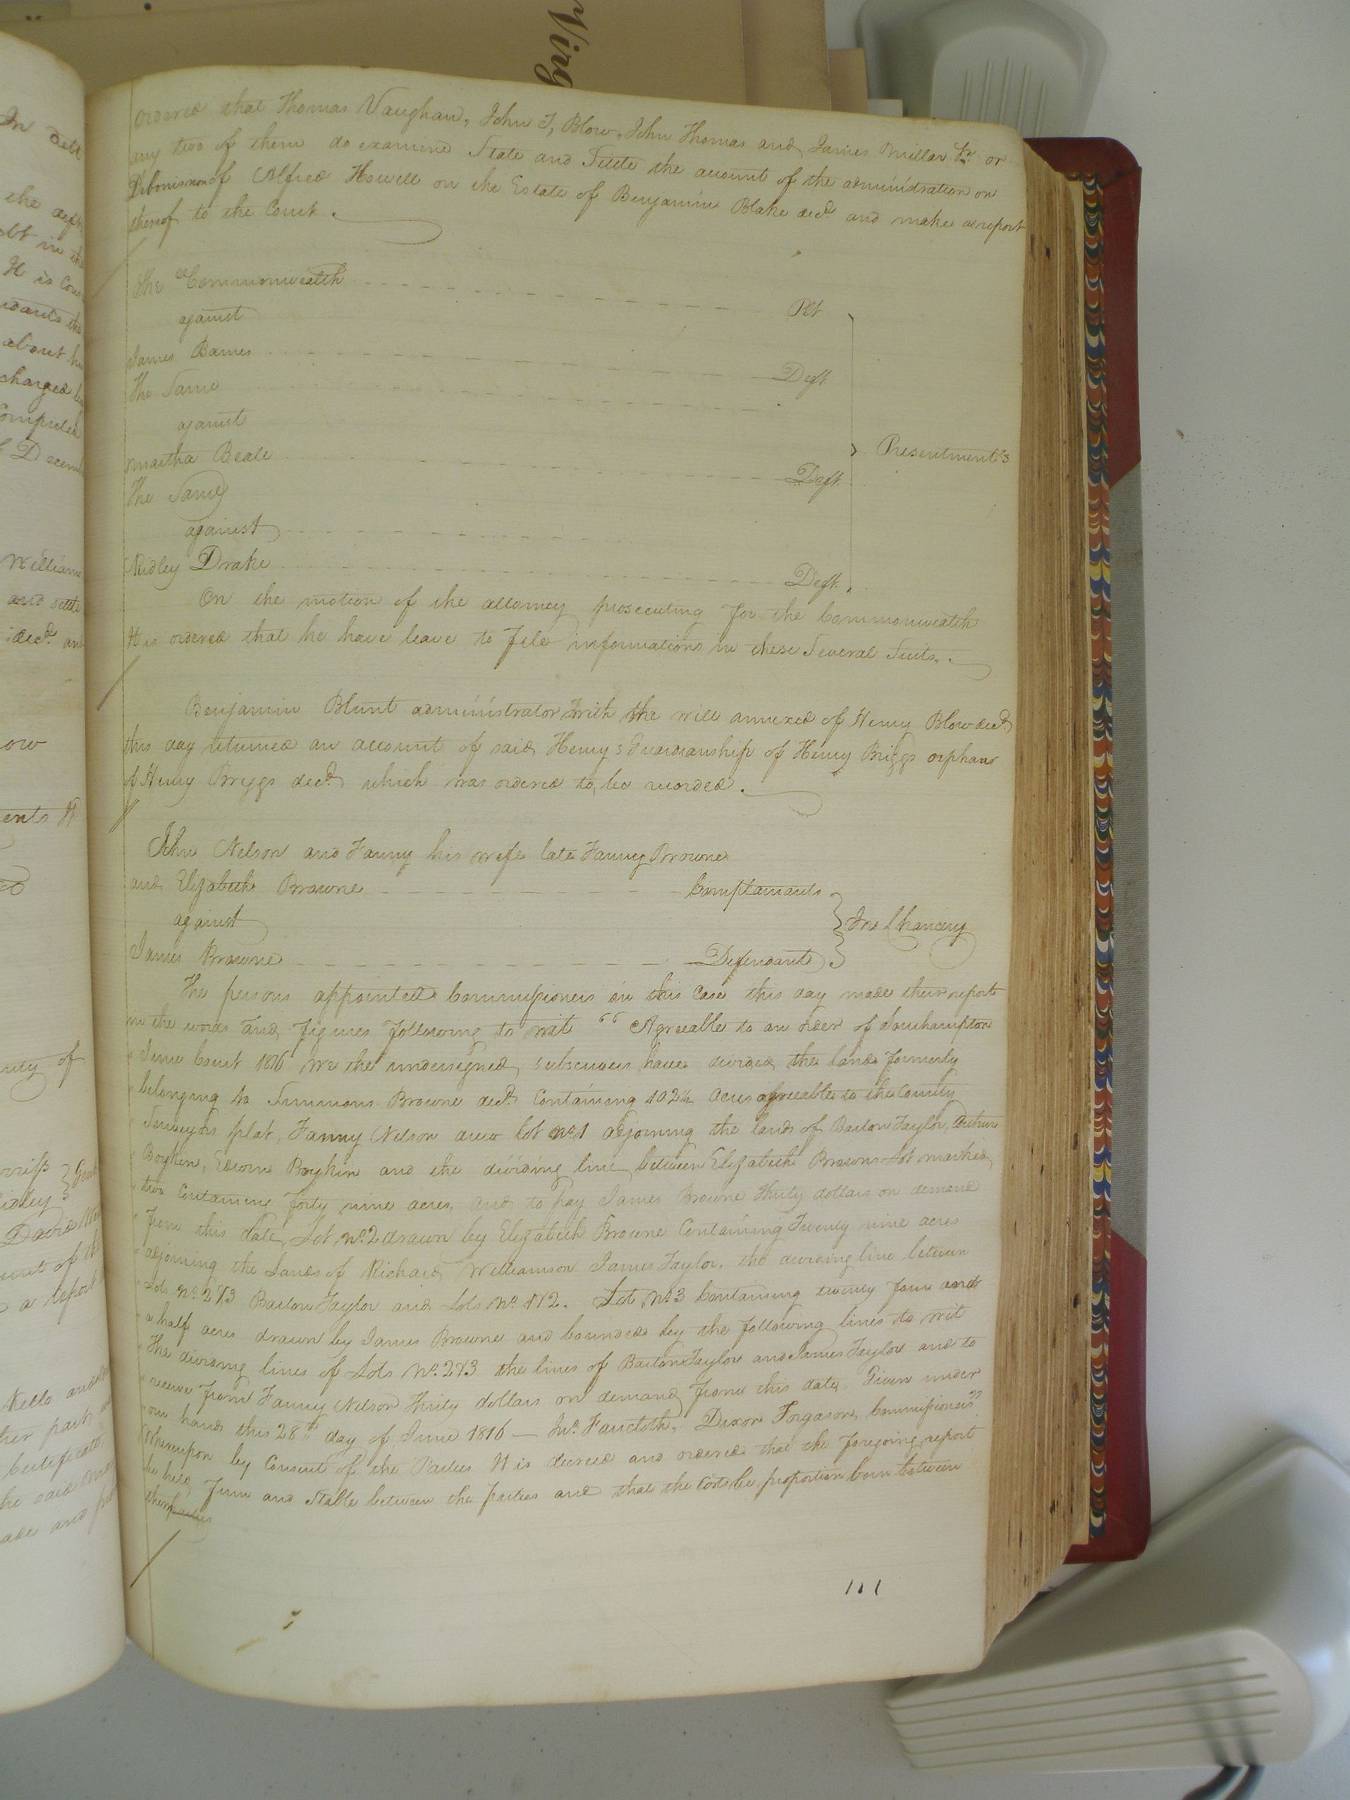 Virg
ordered that Thomas Vaughan, John T, Blow, John Thomas and James Millar Jr. or
any two of them do examine State and Settle the account of the administration on
Debonisnon of Alfred Howell on the Estate of Benjamin Blake decd. and make a report
thereof to the Court.
The Commonwealth Plt
against
James Barnes Deft
The Same
against
Martha Beale Deft
The Same
against
Ridley Drake Deft.
Presentments
On the motion of the attorney prosecuting for the Commonwealth
It is ordered that he have leave to file informations in these Several Suits.
Benjamin Blunt administrator With the will annexed of Henry Blow decd.
this day returned an account of said Henry's Guardianship of Henry Briggs orphan
of Henry Briggs decd. which was ordered to be recorded.
John Nelson and Fanny his wife late Fanny Browne
and Elizabeth Browne Complainants
against
James Browne Defendant
In Chancery
The persons appointed Commissioners in this Case this day made their report
in the words and figures following to wit "Agreeable to an order of Southampton
June Court 1816 We the undersigned subscribers have divided the land formerly
belonging to Simmons Browne decd. Containing 102½ acres agreeable to the County
Surveyors plat, Fanny Nelson drew lot No. 1 adjoining the lands of Barton Taylor,
Boykin, Edwin Boykin and the dividing line between Elizabeth Browns Lot marked
two Containing forty nine acres, and to pay James Browne Thirty dollars on demand
from this date, Lot No. 2 drawn by Elizabeth Browne Containing Twenty nine acres
adjoining the Lands of Richard Williamson James Taylor, the dividing line between
Lots No. 2 & 3 Barton Taylor and Lots No. 1 & 2. Lot No. 3 Containing twenty four and
a half acres drawn by James Browne and bounded by the following lines to wit
The dividing lines of Lots No. 2 & 3 the lines of Barton Taylor and James Taylor and to
receive from Fanny Nelson Thirty dollars on demand from this date. Given under
our hands this 28th day of June 1816 — Jno. Faircloth, Dixon Forgason, Commissioners"
Whereupon by Consent of the Parties It is decreed and ordered that the foregoing report
be held Firm and Stable between the parties and that the cost be proportion born between
them parties
111
In Debt
the deft
debt in the
It is Con
about h
charged
Decem
William
and settle
decd. and
ow
ents
nty of
David
ments of the
a report
Kello and
her part
Certificate
he said
made and